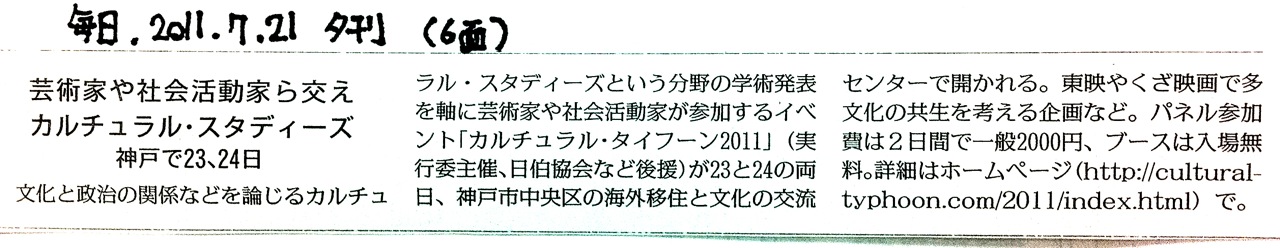 毎日.2011.7.21 夕刊 (6面)
芸術家や社会活動家ら交え
カルチュラル・スタディーズ
神戸で23、24日
文化と政治の関係などを論じるカルチュ
ラル・スタディーズという分野の学術発表
を軸に芸術家や社会活動家が参加するイベ
ント「カルチュラル・タイフーン2011」(実
行委主催、日伯協会など後援)が23と24の両
日、神戸市中央区の海外移住と文化の交流
センターで開かれる。東映やくざ映画で多
文化の共生を考える企画など。パネル参加
費は2日間で一般2000円、ブースは入場無
料。詳細はホームページ(http://cultural-
typhoon.com/2011/index.html)で。